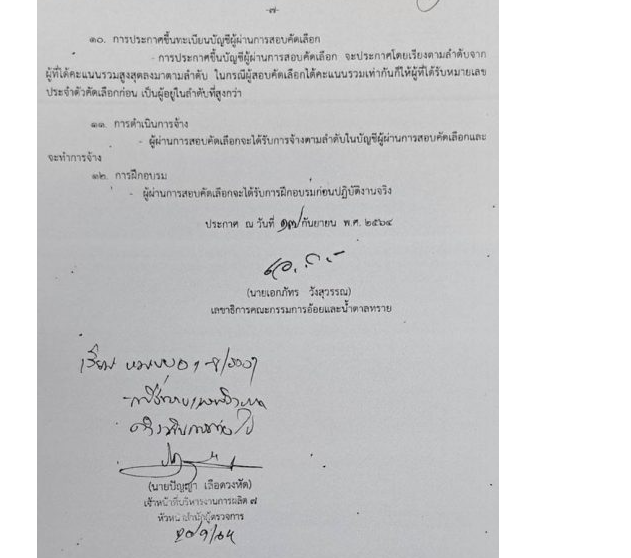 -๗-
๑๐. การประกาศขึ้นทะเบียนบัญชีผู้ผ่านการสอบคัดเลือก
- การประกาศขึ้นบัญชีผู้ผ่านการสอบคัดเลือก จะประกาศโดยเรียงตามลำดับจาก
ผู้ที่ได้คะแนนรวมสูงสุดลงมาตามลำดับ ในกรณีผู้สอบคัดเลือกได้คะแนนรวมเท่ากันก็ให้ผู้ที่ได้รับหมายเลข
ประจำตัวคัดเลือกก่อน เป็นผู้อยู่ในลำดับที่สูงกว่า
๑๑. การดำเนินการจ้าง
- ผู้ผ่านการสอบคัดเลือกจะได้รับการจ้างตามลำดับในบัญชีผู้ผ่านการสอบคัดเลือกและ
จะทำการจ้าง
๑๒. การฝึกอบรม
- ผู้ผ่านการสอบคัดเลือกจะได้รับการฝึกอบรมก่อนปฏิบัติงานจริง
ประกาศ ณ วันที่ ๑๗ กันยายน พ.ศ. ๒๕๖๔
(นายเอกภัทร วังสุวรรณ)
เลขาธิการคณะกรรมการอ้อยและน้ำตาลทราย
เรียน
(นายปัญญา เลือดวงหัด)
เจ้าหน้าที่บริหารงานการผลิต ๗
หัวหน้าสำนักผู้ตรวจการ